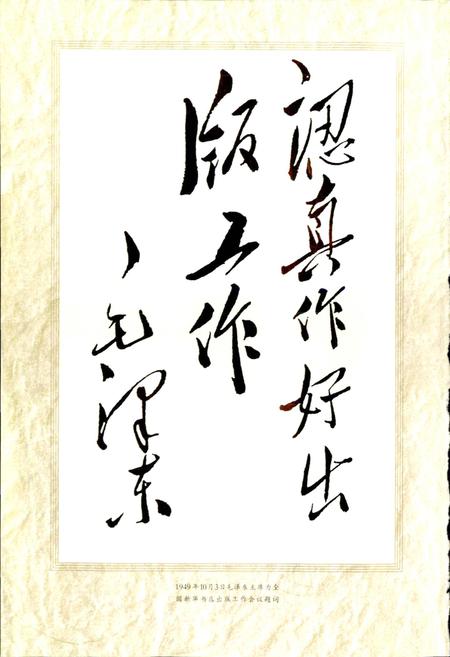 認真作好出
版工作
毛澤东
1949年10月3日毛泽东主席为全
国新华书店出版工作会议题词